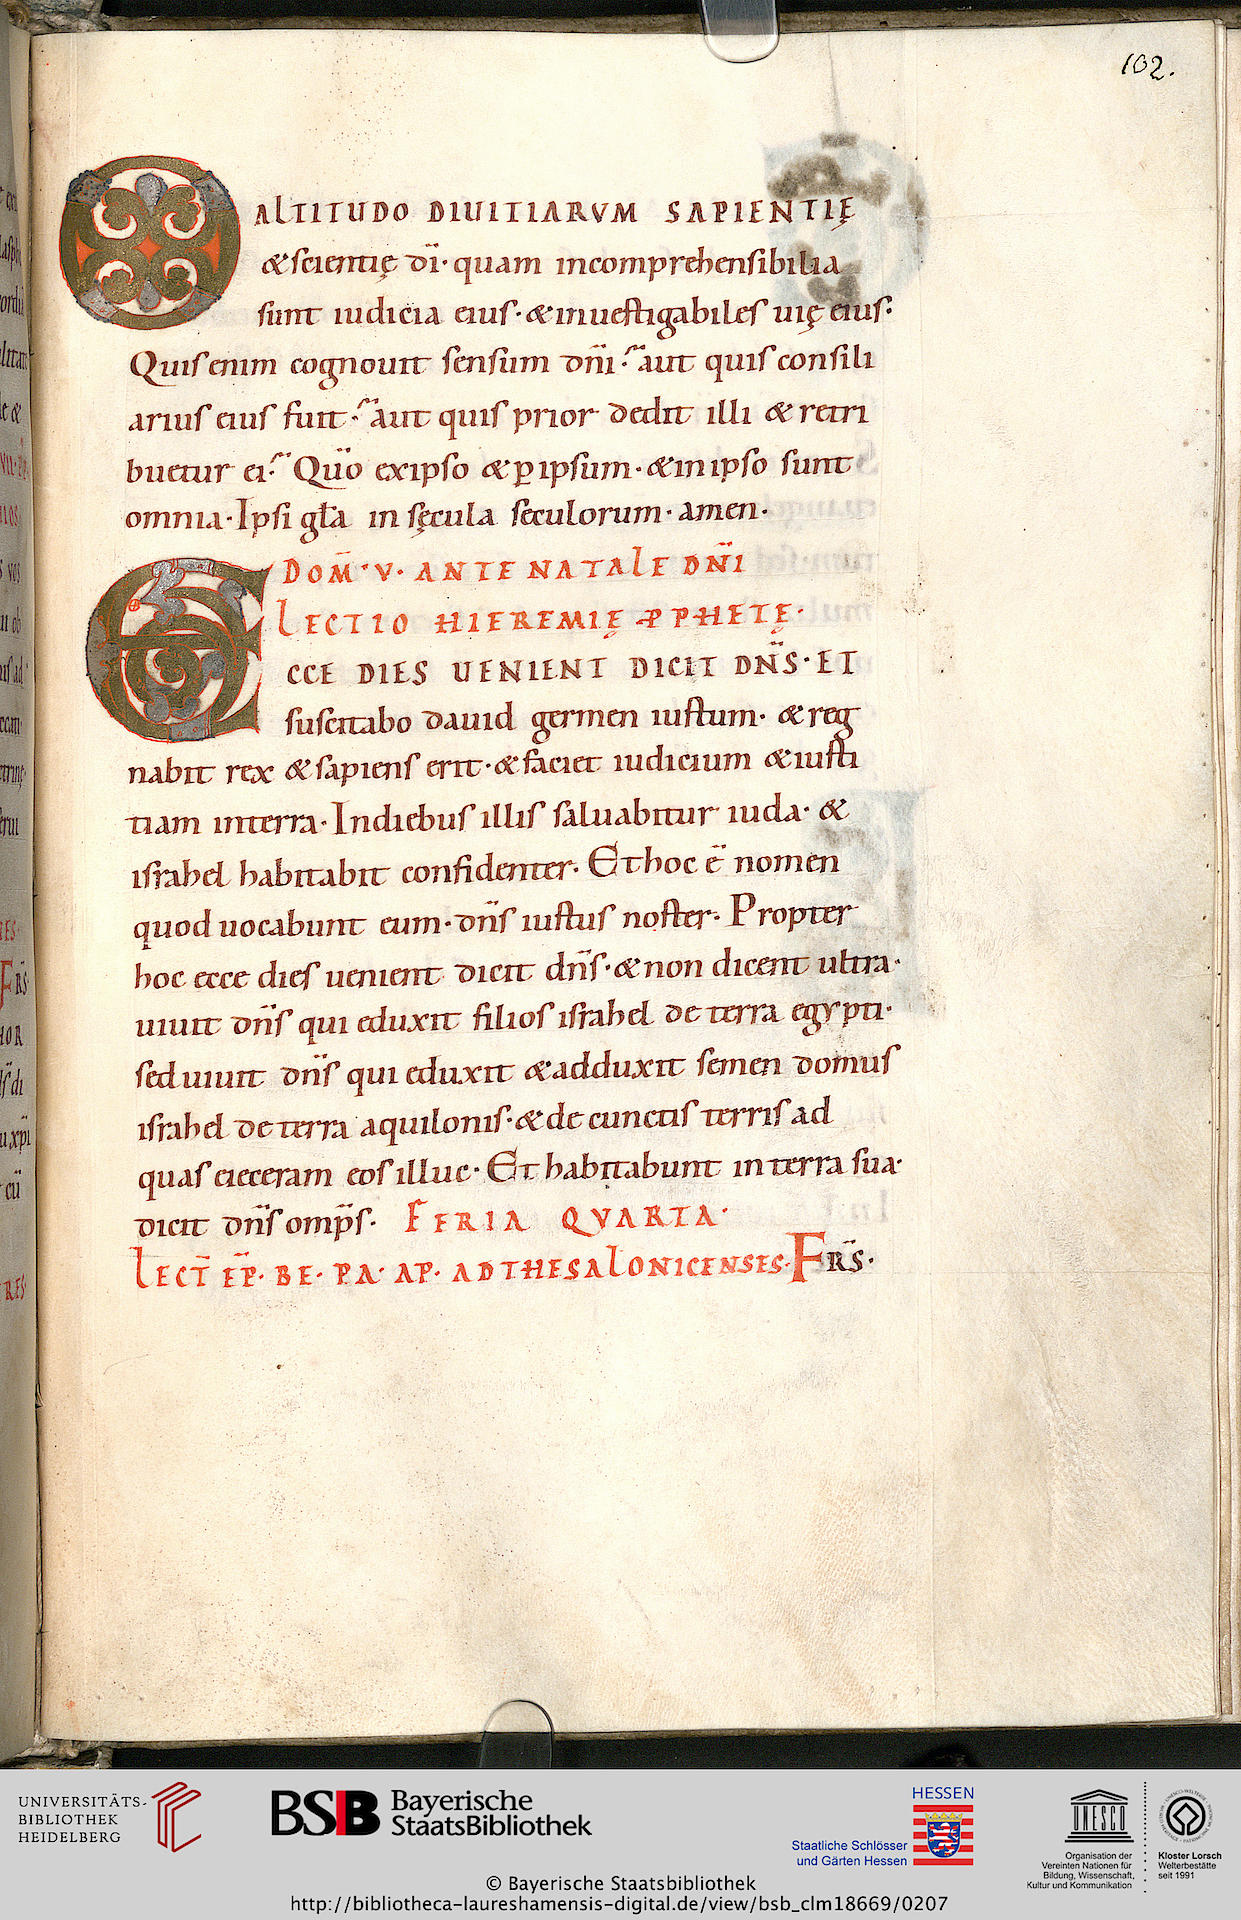 102.
O ALTITUDO DIUITIARVM SAPIENTIĘ
& scientię dī· quam incomprehensibilia
sunt iudicia eius·& inuestigabiles uię eius·
Quis enim cognouit sensum dn̄i· aut quis consili
arius eius fuit· aut quis prior dedit illi & retri
buetur ei· Quō ex ipso & ꝑ ipsum·& in ipso sunt
omnia· Ipsi gła in sęcula seculorum· amen·
DOM̄·V· ANTE NATALE DN̄I
LECTIO HIEREMIĘ PPHETĘ·
ECCE DIES UENIENT DICIT DN̄S· ET
suscitabo dauid germen iustum· & reg
nabit rex & sapiens erit·& faciet iudicium & iusti
tiam in terra· In diebus illis saluabitur iuda· &
israhel habitabit confidenter· Et hoc ē nomen
quod uocabunt eum· dn̄s iustus noster· Propter
hoc ecce dies uenient dicit dn̄s·& non dicent ultra·
uiuit dn̄s qui eduxit filios israhel de terra egypti·
sed uiuit dn̄s qui eduxit & adduxit semen domus
israhel de terra aquilonis·& de cunctis terris ad
quas eieceram eos illuc· Et habitabunt in terra sua·
dicit dn̄s omp̄s· FERIA QVARTA·
LECT̄ EP̄· BE· PA· AP· AD THESALONICENSES· FR̄S·
UNIVERSITÄTS-
BIBLIOTHEK
HEIDELBERG
BSB Bayerische
StaatsBibliothek
HESSEN
Staatliche Schlösser
und Gärten Hessen
UNESCO
Organisation der
Vereinten Nationen für
Bildung, Wissenschaft,
Kultur und Kommunikation
Kloster Lorsch
Welterbestätte
seit 1991
© Bayerische Staatsbibliothek
http://bibliotheca-laureshamensis-digital.de/view/bsb_clm18669/0207